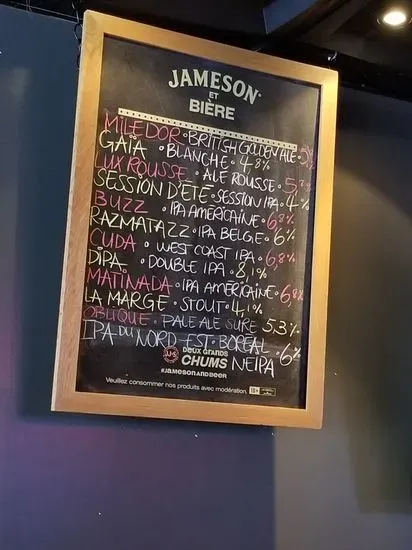 JAMESON
ET
BIÈRE
MILE DOR • BRITISH GOLDEN ALE • 5%
GAÏA • BLANCHE • 4,8%
LUX ROUSSE • ALE ROUSSE • 5,2%
SESSION D'ÉTÉ • SESSION IPA • 4%
BUZZ • IPA AMÉRICAINE • 6,8%
RAZMATAZZ • IPA BELGE • 6%
CUDA • WEST COAST IPA • 6,8%
DIPA • DOUBLE IPA • 8,1%
MATINADA • IPA AMÉRICAINE • 6,8%
LA MARGE • STOUT • 4,1%
OBLIQUE • PALE ALE SURE 5.3%
IPA DU NORD-EST • BORÉAL • 6%
NEIPA
DEUX GRANDS
CHUMS
#JAMESONANDBEER
Veuillez consommer nos produits avec modération.